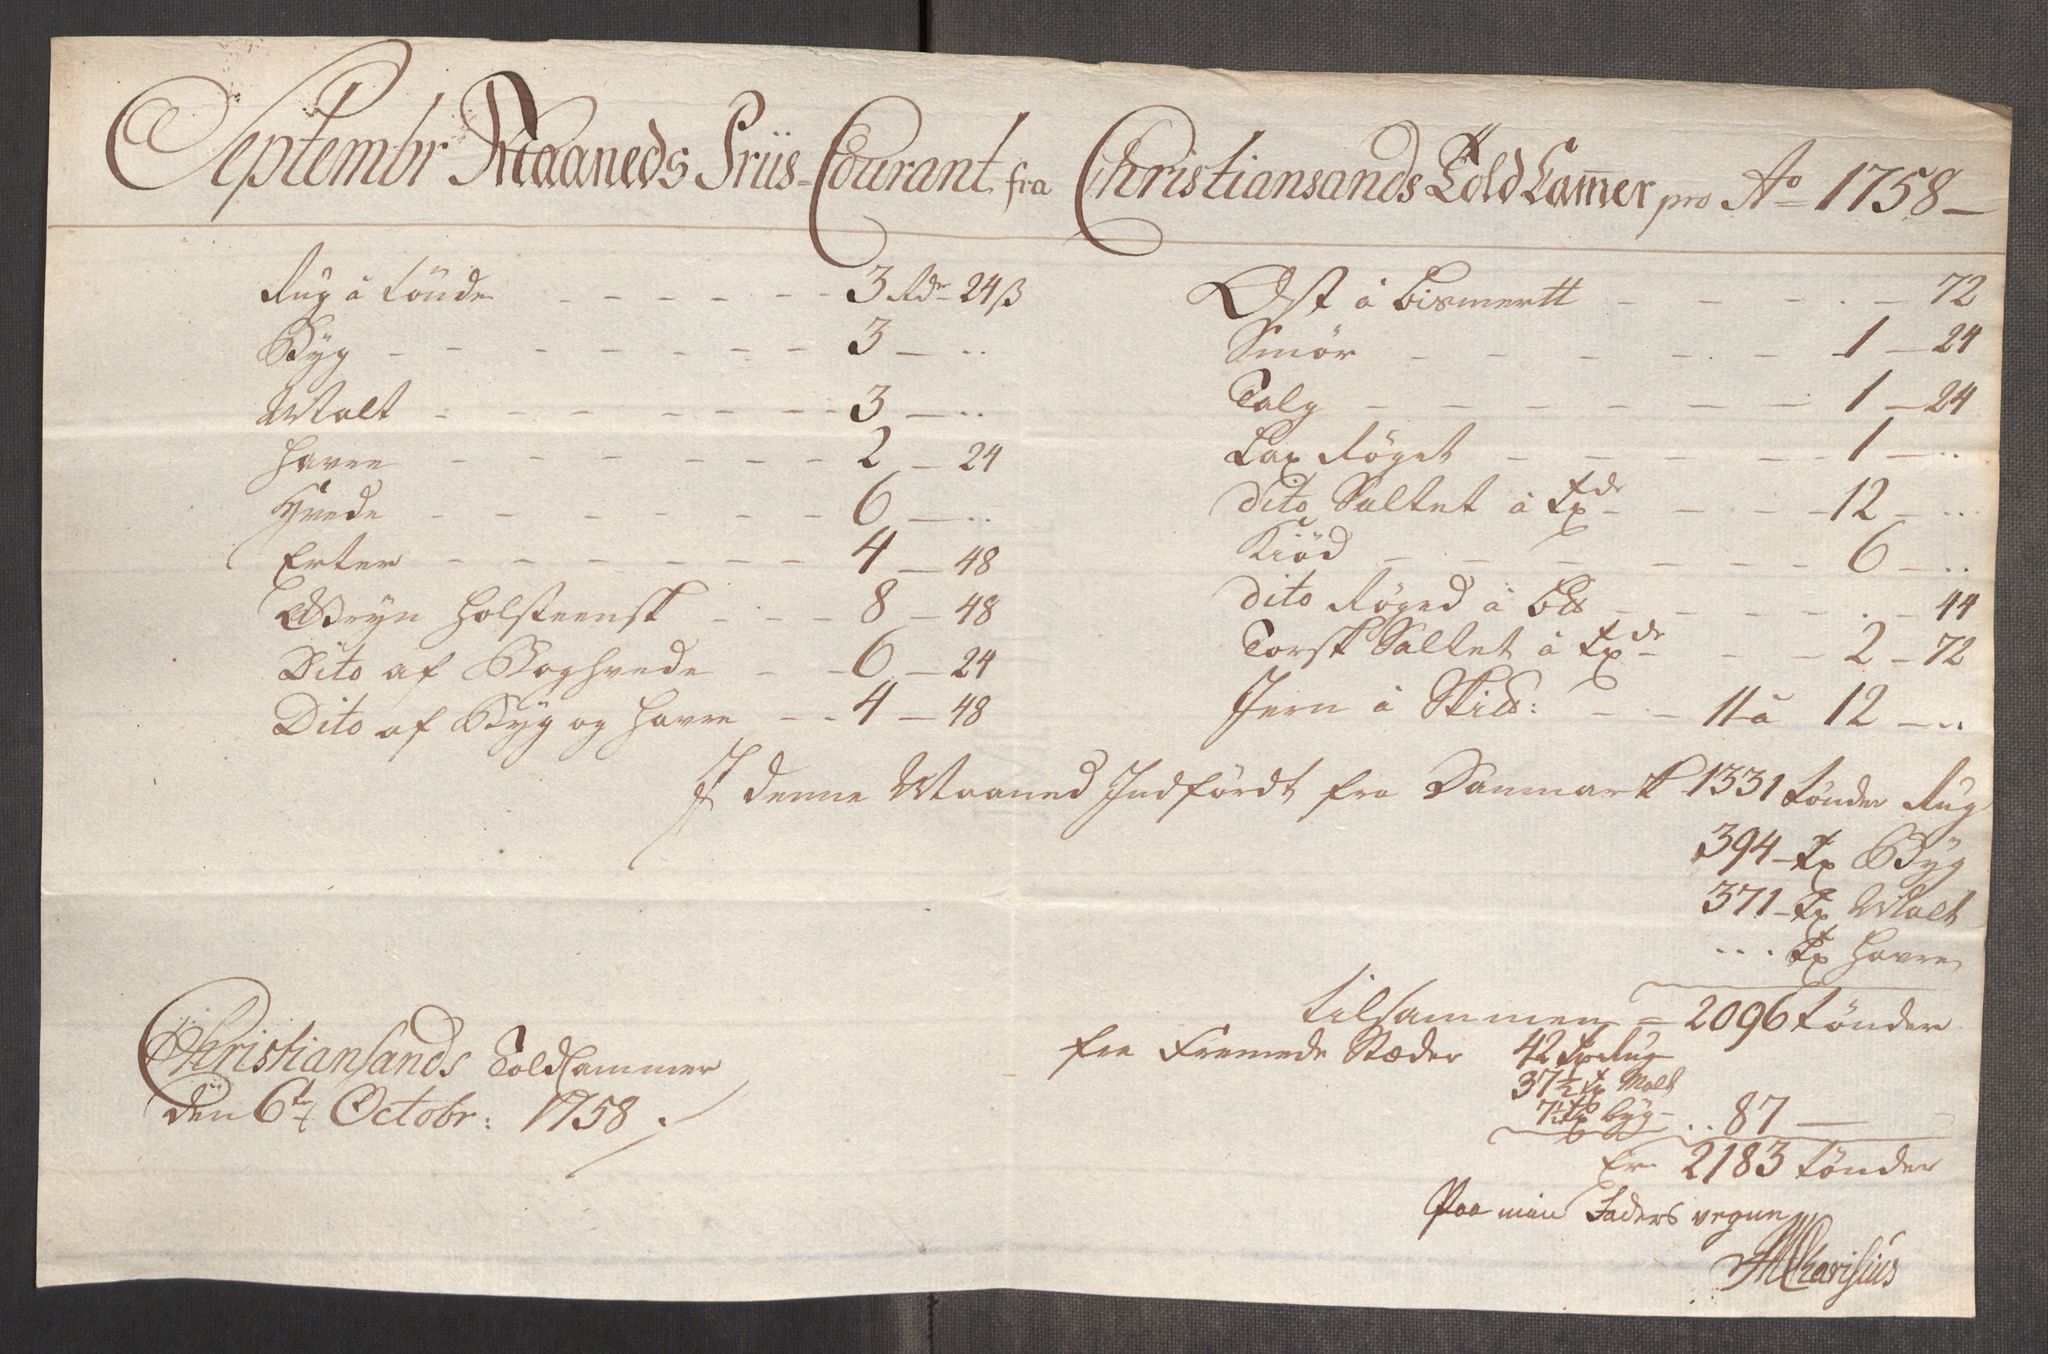 Septembr Maaneds Priis-Courant fra Christiansands Told Camer pro Ao 1758
Rug a Tönde 3 Rdr 24 ß
Byg 3 - ..
Malt 3 - ..
Havre 2 - 24
Hvede 6 - ..
Erter 4 - 48
Gryn Holsteensk 8 - 48
Dito af Boghvede 6 - 24
Dito af Byg og Havre 4 - 48
Ost á Bismertt . - 72
Smör 1 - 24
Talg 1 - 24
Lax Röget 1 - ..
Dito Saltet á Tdr 12 - ..
Kiöd 6 - ..
Dito Röged á B℔ . - 44
Torsk Saltet á Tdr 2 - 72
Jern á Ski℔: 11 á 12 - ..
I denne Maaned Indfördt fra Danmark 1331 Tönder Rug
394 - Tr Byg
371 - Tr Malt
... Tr Havre
tilsammen = 2096 Tönder
fra Fremede Stæder 42 Tr Rug
37½ Tr Malt
7½ Tr Byg - .. 87 -
Er 2183 Tönder
Christiansands Told Cammer
den 6t Octobr: 1758
Paa min Faders vegne
M Charisius